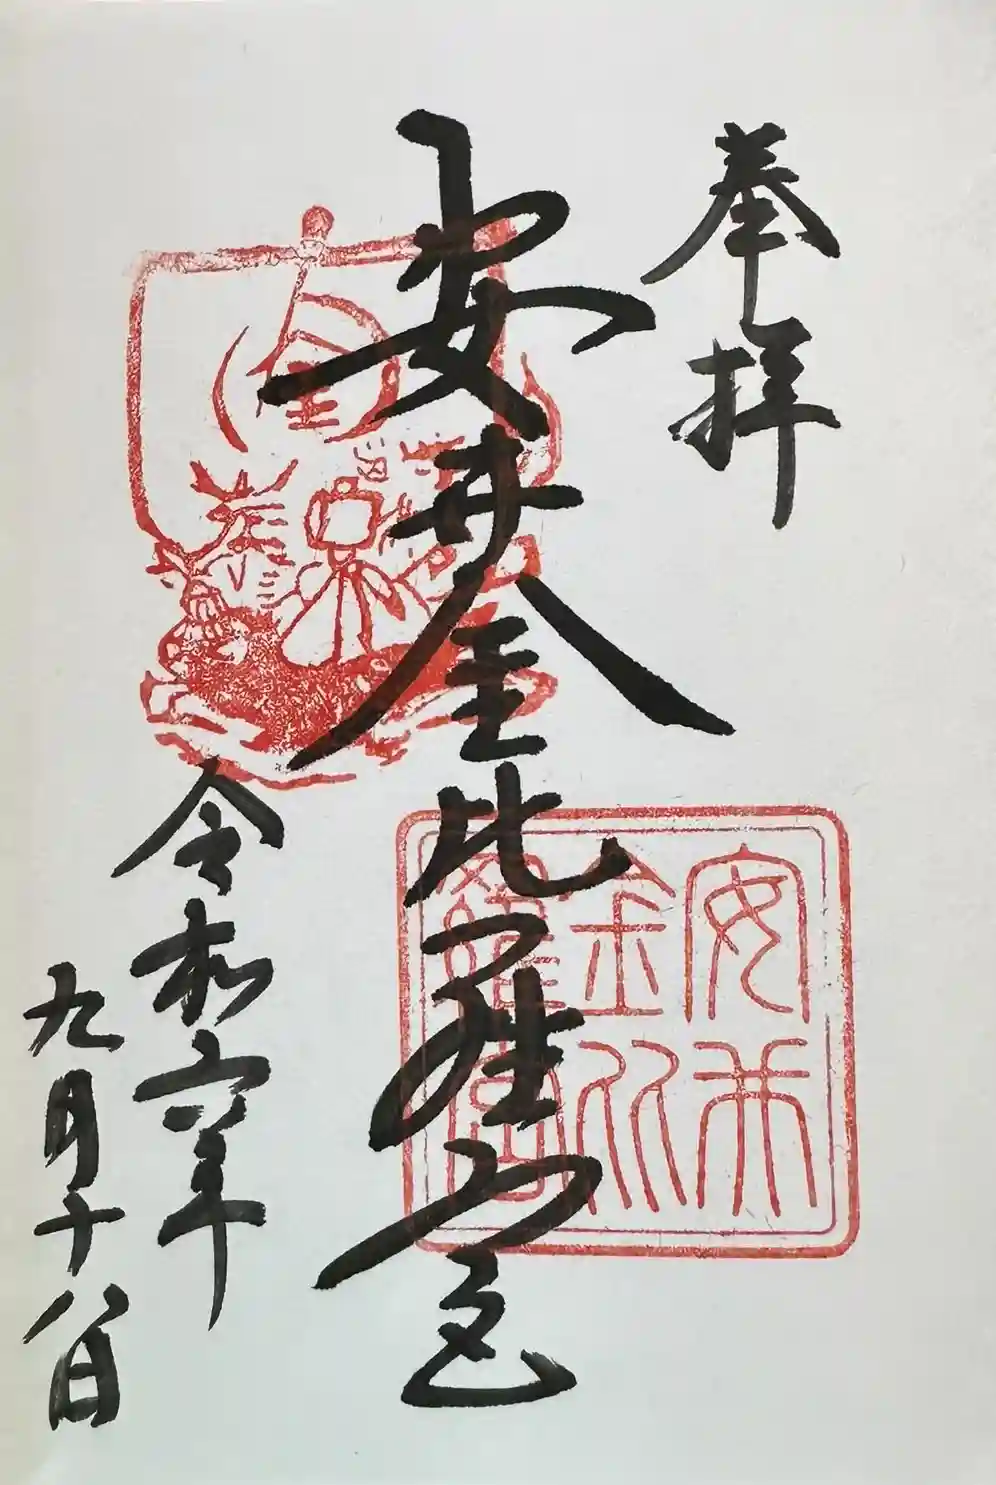 奉拝
安井金比羅宮
安井
金比
羅宮
令和六年
九月十八日